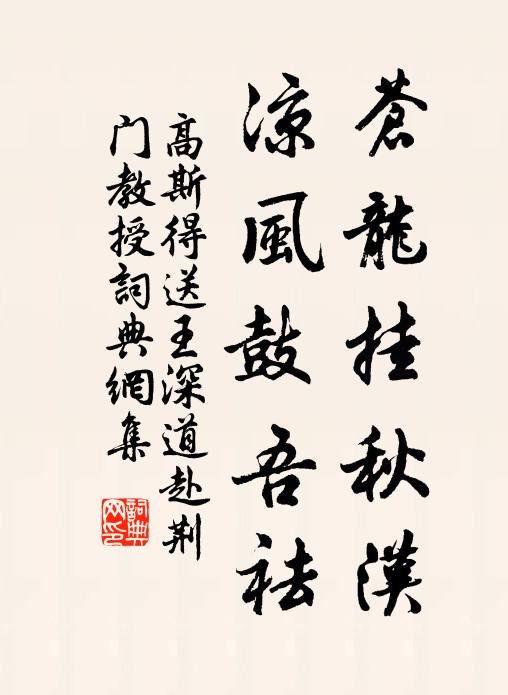 蒼龍挂秋漢
涼風鼓吾祛
高斯得送王深道赴荆
门教授詞典網集
詞典网印